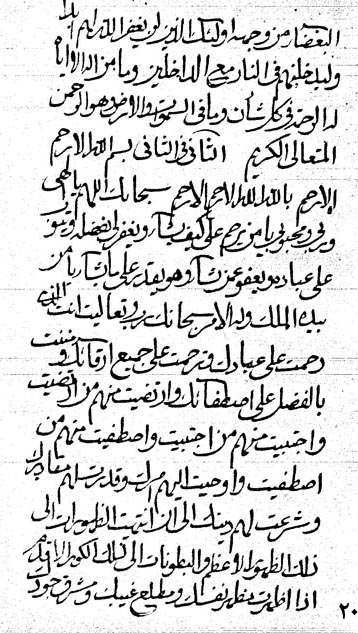 البغضا من وجهه اولئك الذين لن يغفر الله لهم ابدا
وليدخلنهم في النار مع الداخلين وما من اله الا اياه
له الرحمة في كل شأن وما في السموات والارض وهو الرحمن
المتعالى الكريم الثانى فى الثانى بسم الله الارحم
الارحم بالله الله الارحم الارحم سبحانك اللهم يا الهى
وربى ومحبوبى يا من يرحم على كيف يشاء ويغفر لفضله ويتوب
على عباده ويعفو عمن يشاء وهو يقدر على ما يشاء يا من
بيده الملك وله الامر سبحانك رب وتعاليت انت الذى
رحمت على عبادك وترحمت على جميع ارقائك ومننت
بالفضل على اصطفائك وارتضيت منهم من ارتضيت
واجتبيت منهم من اجتبيت واصطفيت منهم من
اصطفيت واوحيت اليهم امرك وقدرت لهم مقاديرك
وشرعت لهم دينك الى ان انتهت الظهورات الى
ذلك الظهور الاعظم والبطونات الى ذلك الكور الاقدم
اذا اظهرت مظهر نفسك ومطلع غيبك ومشرق جودك
٢٠